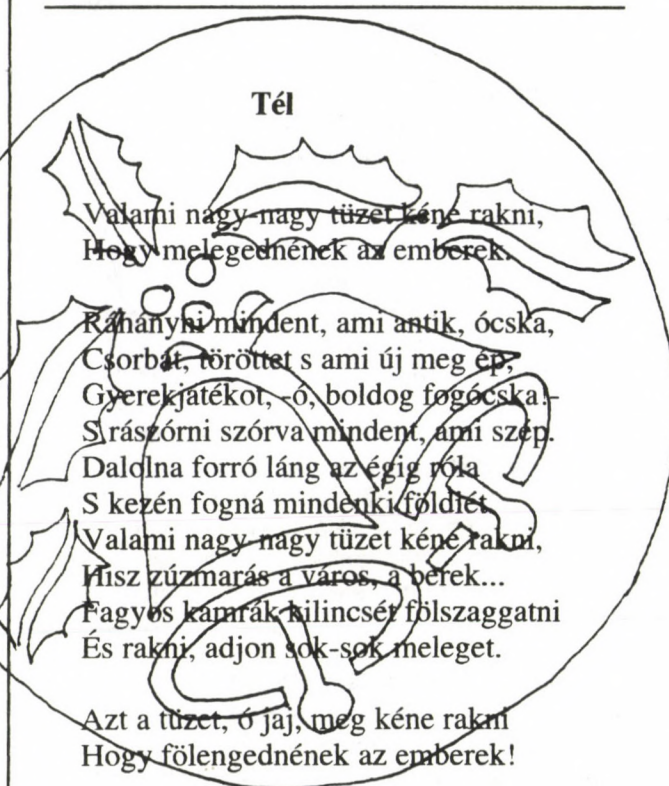 Tél
Valami nagy-nagy tüzet kéne rakni,
Hogy melegednének az emberek.
Ráhányni mindent, ami antik, ócska,
Csorbát, töröttet s ami új meg ép,
Gyerekjátékot, -ó, boldog fogócska!-
S rászórni szórva mindent, ami szép.
Dalolna forró láng az égig róla
S kezén fogná mindenki földiét.
Valami nagy-nagy tüzet kéne rakni,
Hisz zúzmarás a város, a berek...
Fagyos kamrák kilincsét fölszaggatni
És rakni, adjon sok-sok meleget.
Azt a tüzet, ó jaj, meg kéne rakni
Hogy fölengednének az emberek!